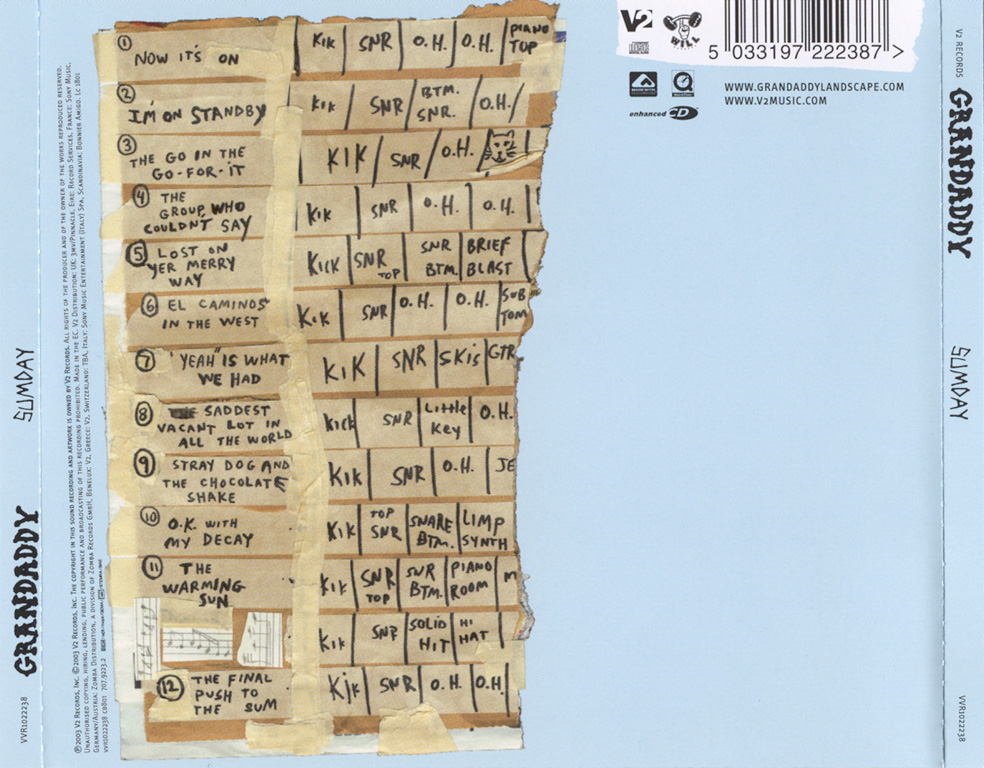 ① NOW IT'S ON
KIK SNR O.H. O.H. PIANO TOP
② I'M ON STANDBY
KIK SNR BTM. SNR. O.H.
③ THE GO IN THE
GO-FOR-IT
KIK SNR O.H.
④ THE
GROUP WHO
COULDN'T SAY
KIK SNR O.H. O.H.
⑤ LOST ON
YER MERRY
WAY
KICK SNR TOP SNR BTM. BRIEF BLAST
⑥ EL CAMINOS
IN THE WEST
KIK SNR O.H. O.H. SUB TOM
⑦ "YEAH" IS WHAT
WE HAD
KIK SNR SKIS GTR
⑧ SADDEST
VACANT LOT IN
ALL THE WORLD
KICK SNR LITTLE KEY O.H.
⑨ STRAY DOG AND
THE CHOCOLATE
SHAKE
KIK SNR O.H. JE
⑩ O.K. WITH
MY DECAY
KIK TOP SNR SNARE BTM. LIMP SYNTH
⑪ THE
WARMING
SUN
KIK SNR TOP SNR BTM. PIANO ROOM M
KIK SNR SOLID HIT HI HAT
⑫ THE FINAL
PUSH TO
THE SUM
KIK SNR O.H. O.H.
V2
WILL
5 033197 222387 >
WWW.GRANDADDYLANDSCAPE.COM
WWW.V2MUSIC.COM
enhanced CD
SUMDAY
GRANDADDY
VVR1022238
V2 RECORDS
GRANDADDY
SUMDAY
VVR1022238
℗2003 V2 RECORDS, INC. ©2003 V2 RECORDS, INC. THE COPYRIGHT IN THIS SOUND RECORDING AND ARTWORK IS OWNED BY V2 RECORDS. ALL RIGHTS OF THE PRODUCER AND OF THE OWNER OF THE WORKS REPRODUCED RESERVED.
UNAUTHORISED COPYING, HIRING, LENDING, PUBLIC PERFORMANCE AND BROADCASTING OF THIS RECORDING PROHIBITED. MADE IN THE EC. V2 DISTRIBUTION: UK: 3MV/PINNACLE, EIRE: RECORD SERVICES, FRANCE: SONY MUSIC,
GERMANY/AUSTRIA: ZOMBA DISTRIBUTION, A DIVISION OF ZOMBA RECORDS GMBH, BENELUX: V2, GREECE: V2, SWITZERLAND: TBA, ITALY: SONY MUSIC ENTERTAINMENT (ITALY) SPA, SCANDINAVIA: BONNIER AMIGO. LC 1801
VVR1022238 CB801 707.9223.2